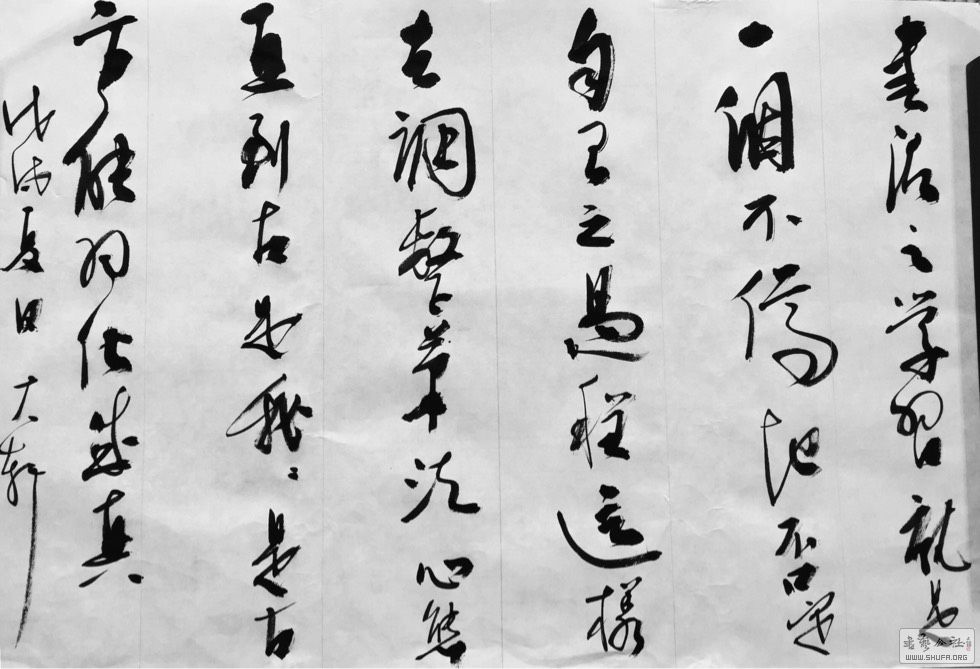 书法之学习就是
一个不停地否定
自己之过程这样
去调整笔法心态
直到古是我我是古
方能羽化成真
戊戌夏日 大轩
书艺公社
WWW.SHUFA.ORG